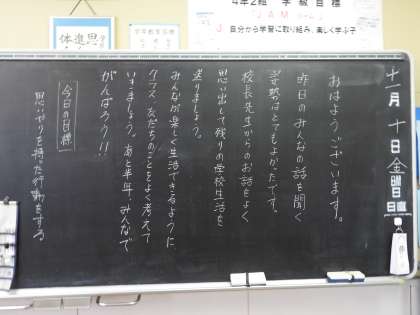 4年2組 学級目標
JAM
J 自分から学習に取り組み、楽しく学ぶ子
学年教育目標
進 思
体
十一月 十日 金曜日
日直
おはようございます。
昨日のみんなの話を聞く
姿勢はとてもよかったです。
校長先生からのお話をよく
思い出して残りの学校生活を
送りましょう。
みんなが楽しく生活できるように、
クラス、友だちのことをよく考えて
いきましょう。あと半年、みんなで
がんばろう!!
今日の目標
思いやりを持った行動をする